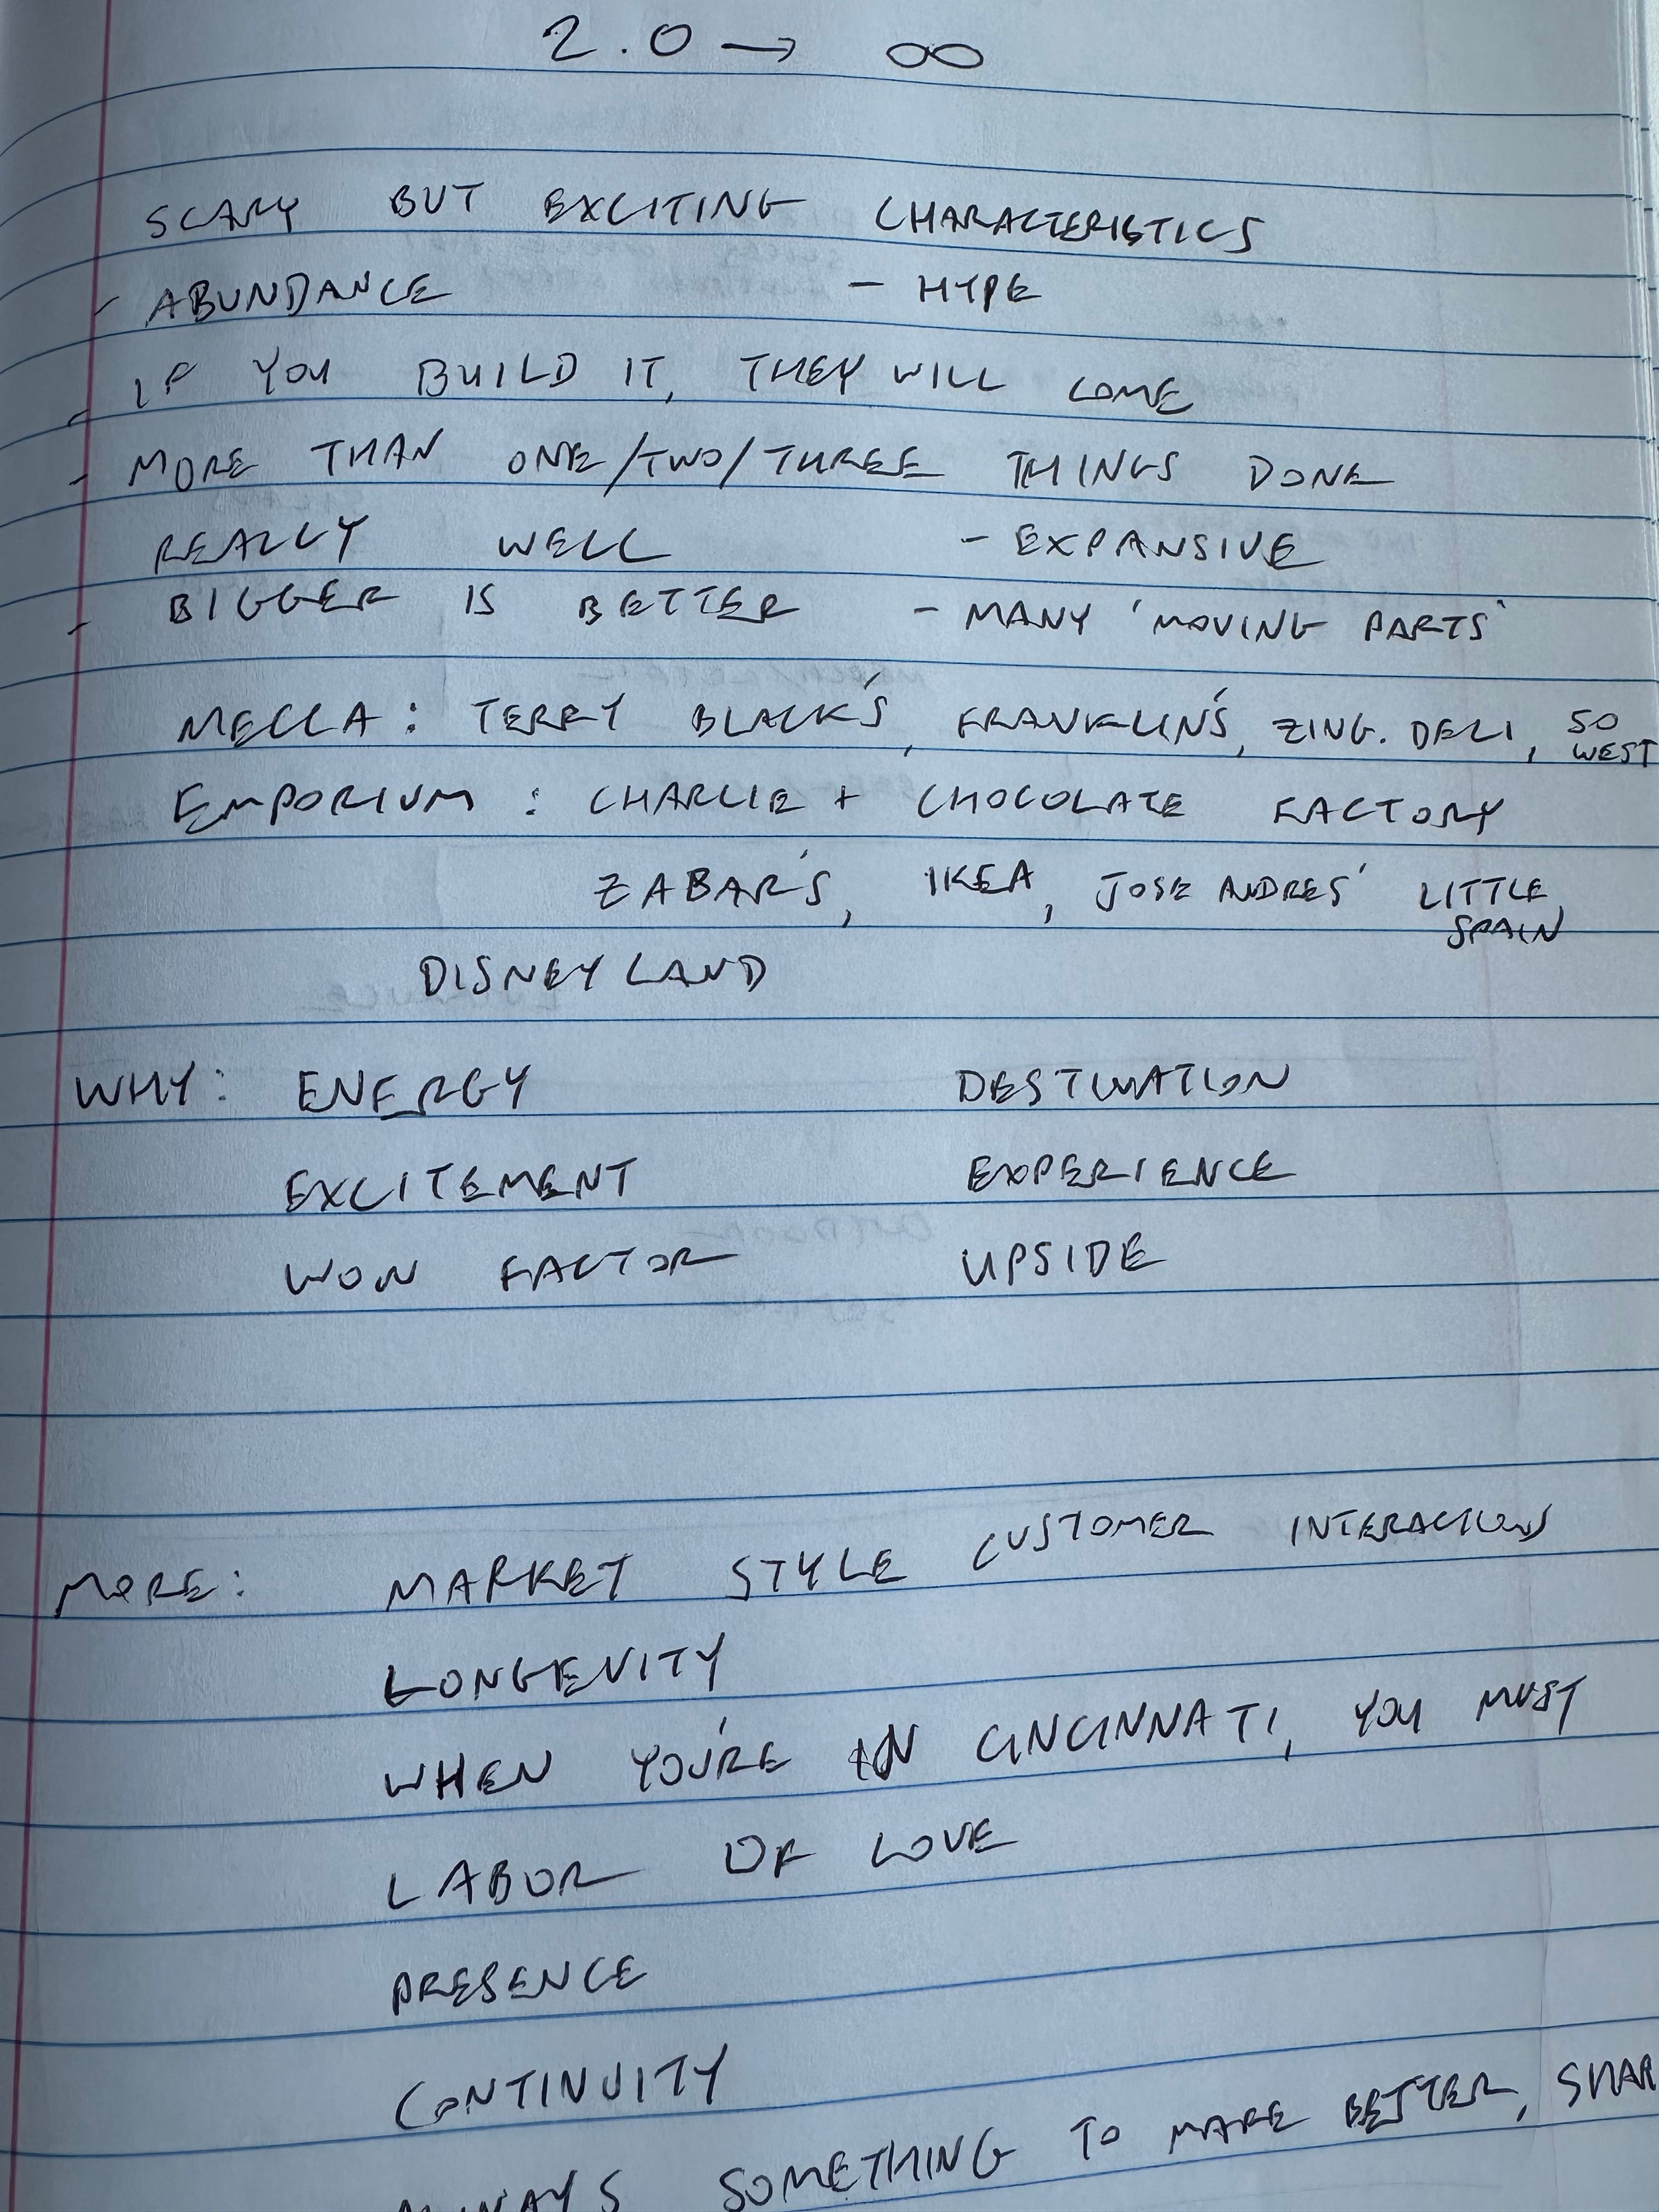 2.0 → ∞
SCARY BUT EXCITING CHARACTERISTICS
- ABUNDANCE - HYPE
- IF YOU BUILD IT, THEY WILL COME
- MORE THAN ONE/TWO/THREE THINGS DONE
REALLY WELL - EXPANSIVE
- BIGGER IS BETTER - MANY 'MOVING PARTS'
MECCA: TERRY BLACK'S, FRANKLIN'S, ZING. DELI, SO
WEST
EMPORIUM: CHARLIE + CHOCOLATE FACTORY
ZABAR'S, IKEA, JOSE ANDRES' LITTLE
SPAIN
DISNEYLAND
WHY: ENERGY DESTINATION
EXCITEMENT EXPERIENCE
WOW FACTOR UPSIDE
MORE: MARKET STYLE CUSTOMER INTERACTIONS
LONGEVITY
WHEN YOU'RE IN CINCINNATI, YOU MUST
LABOR OF LOVE
PRESENCE
CONTINUITY
ALWAYS SOMETHING TO MAKE BETTER,